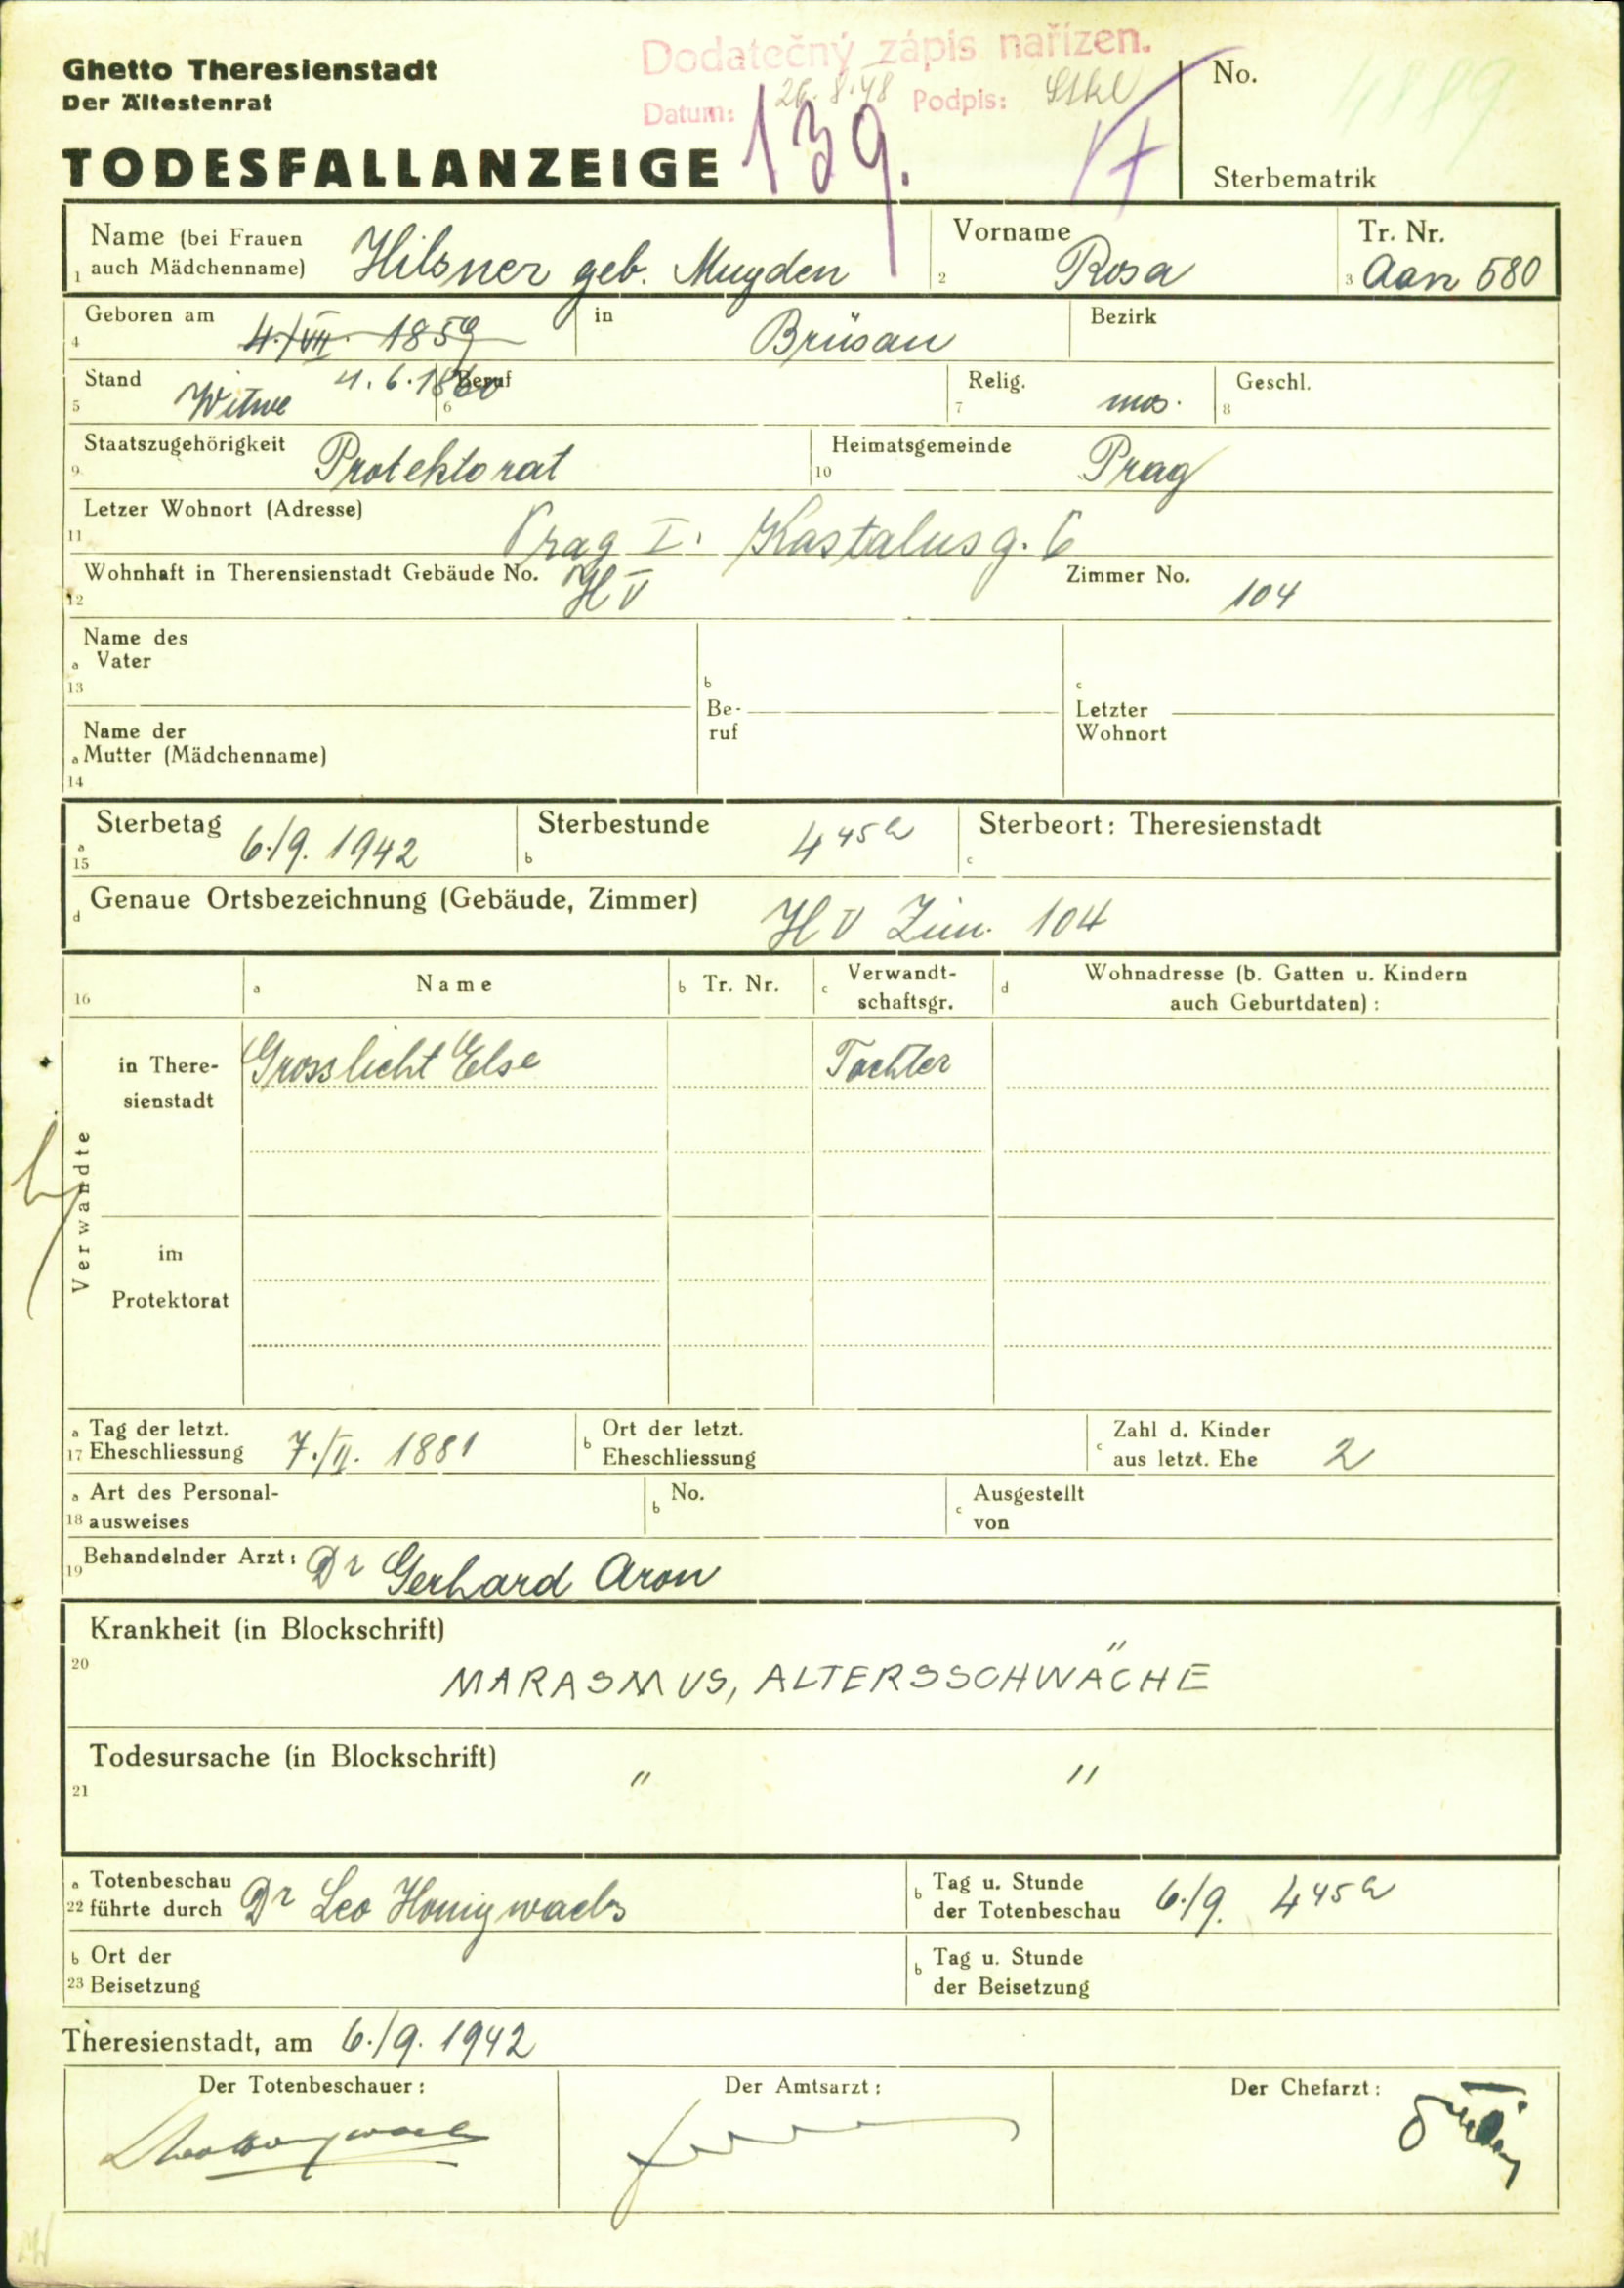 Ghetto Theresienstadt
Der Ältestenrat
TODESFALLANZEIGE
Dodatečný zápis nařízen.
Datum: 26.8.48 Podpis:
139.
No. 4889
Sterbematrik
1 Name (bei Frauen auch Mädchenname) Hilsner geb. Muyden
2 Vorname Rosa
3 Tr. Nr. Aan 580
4 Geboren am 4./VII. 1859 in Brüsau Bezirk
4.6.1860
5 Stand Witwe 6 Beruf 7 Relig. mos. 8 Geschl.
9 Staatszugehörigkeit Protektorat 10 Heimatsgemeinde Prag
11 Letzer Wohnort (Adresse) Prag I. Kastalusg. 6
12 Wohnhaft in Therensienstadt Gebäude No. H V Zimmer No. 104
13 a Name des Vater
b Beruf
c Letzter Wohnort
14 a Name der Mutter (Mädchenname)
15 a Sterbetag 6./9. 1942 b Sterbestunde 4 45 h c Sterbeort: Theresienstadt
d Genaue Ortsbezeichnung (Gebäude, Zimmer) H V Zim. 104
16 a Name b Tr. Nr. c Verwandtschaftsgr. d Wohnadresse (b. Gatten u. Kindern auch Geburtdaten):
Verwandte
in Theresienstadt Grosslicht Else Tochter
im Protektorat
17 a Tag der letzt. Eheschliessung 7./II. 1881 b Ort der letzt. Eheschliessung c Zahl d. Kinder aus letzt. Ehe 2
18 a Art des Personalausweises b No. c Ausgestellt von
19 Behandelnder Arzt: Dr Gerhard Aron
20 Krankheit (in Blockschrift)
MARASMUS, ALTERSSCHWÄCHE
21 Todesursache (in Blockschrift) " "
22 a Totenbeschau führte durch Dr Leo Honigwachs b Tag u. Stunde der Totenbeschau 6./9. 4 45 h
23 b Ort der Beisetzung b Tag u. Stunde der Beisetzung
Theresienstadt, am 6./9. 1942
Der Totenbeschauer: Der Amtsarzt: Der Chefarzt: